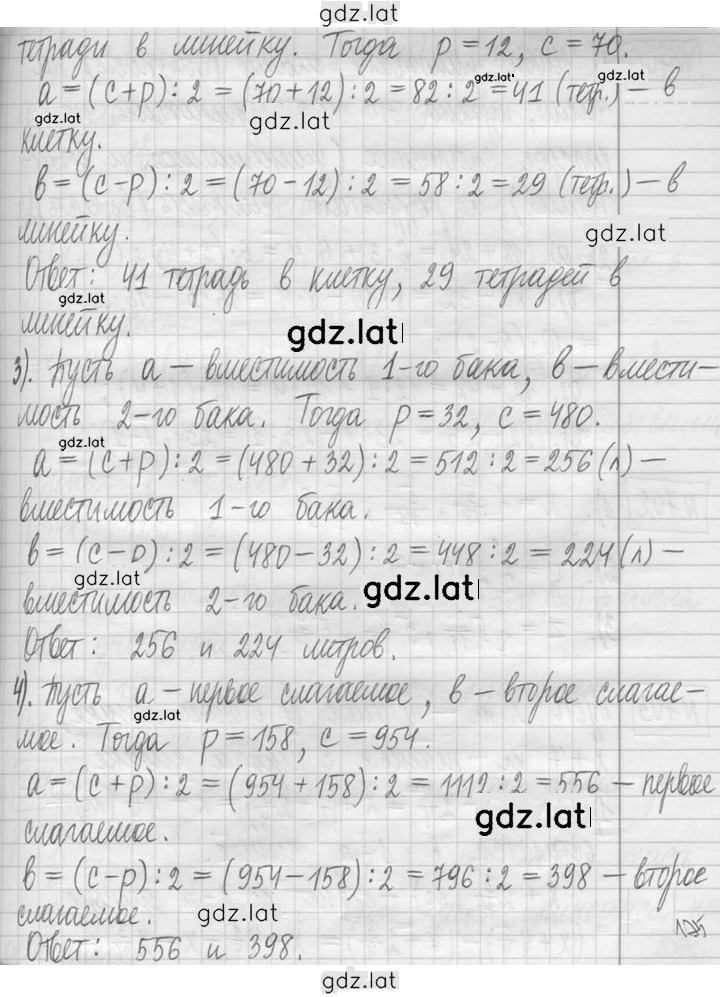 gdz.lat
тетради в линейку. Тогда p=12, c=70.
a=(c+p):2=(70+12):2=82:2=41 (тетр.) — в
gdz.lat gdz.lat
gdz.lat gdz.lat
клетку.
в=(c-p):2=(70-12):2=58:2=29 (тетр.) — в
линейку.
gdz.lat
Ответ: 41 тетрадь в клетку, 29 тетрадей в
gdz.lat
линейку.
gdz.lat
3). Пусть a — вместимость 1-го бака, в — вмести-
мость 2-го бака. Тогда p=32, c=480.
gdz.lat
a=(c+p):2=(480+32):2=512:2=256 (л) —
вместимость 1-го бака.
в=(c-p):2=(480-32):2=448:2=224 (л) —
gdz.lat gdz.lat
вместимость 2-го бака.
Ответ: 256 и 224 литров.
4). Пусть a — первое слагаемое, в — второе слагае-
gdz.lat
мое. Тогда p=158, c=954.
a=(c+p):2=(954+158):2=1112:2=556 — первое
gdz.lat
слагаемое.
в=(c-p):2=(954-158):2=796:2=398 — второе
слагаемое.
gdz.lat
Ответ: 556 и 398.
125
gdz.lat